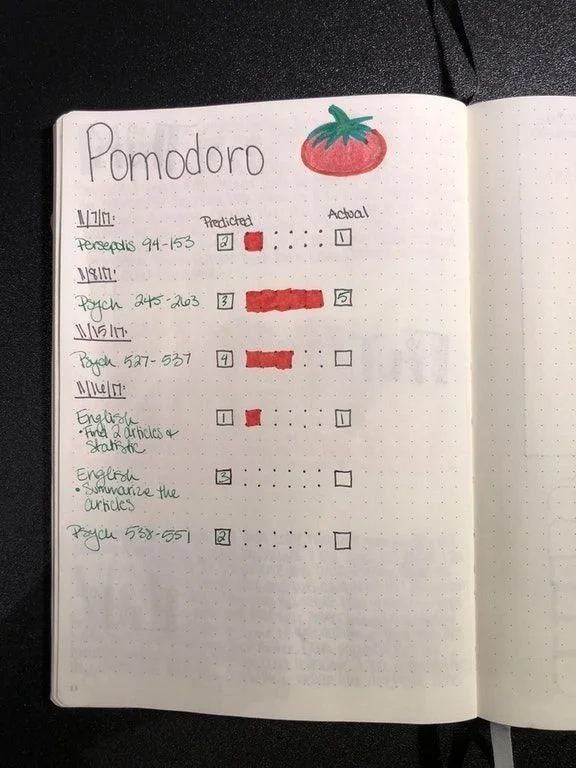 Pomodoro
11/7/17:
Predicted Actual
Persepolis 94-153 2 1
11/8/17:
Psych 245-263 3 5
11/15/17:
Psych 527-537 4
11/16/17:
English 1 1
• Find 2 articles &
statistic
English 3
• Summarize the
articles
Psych 538-551 2